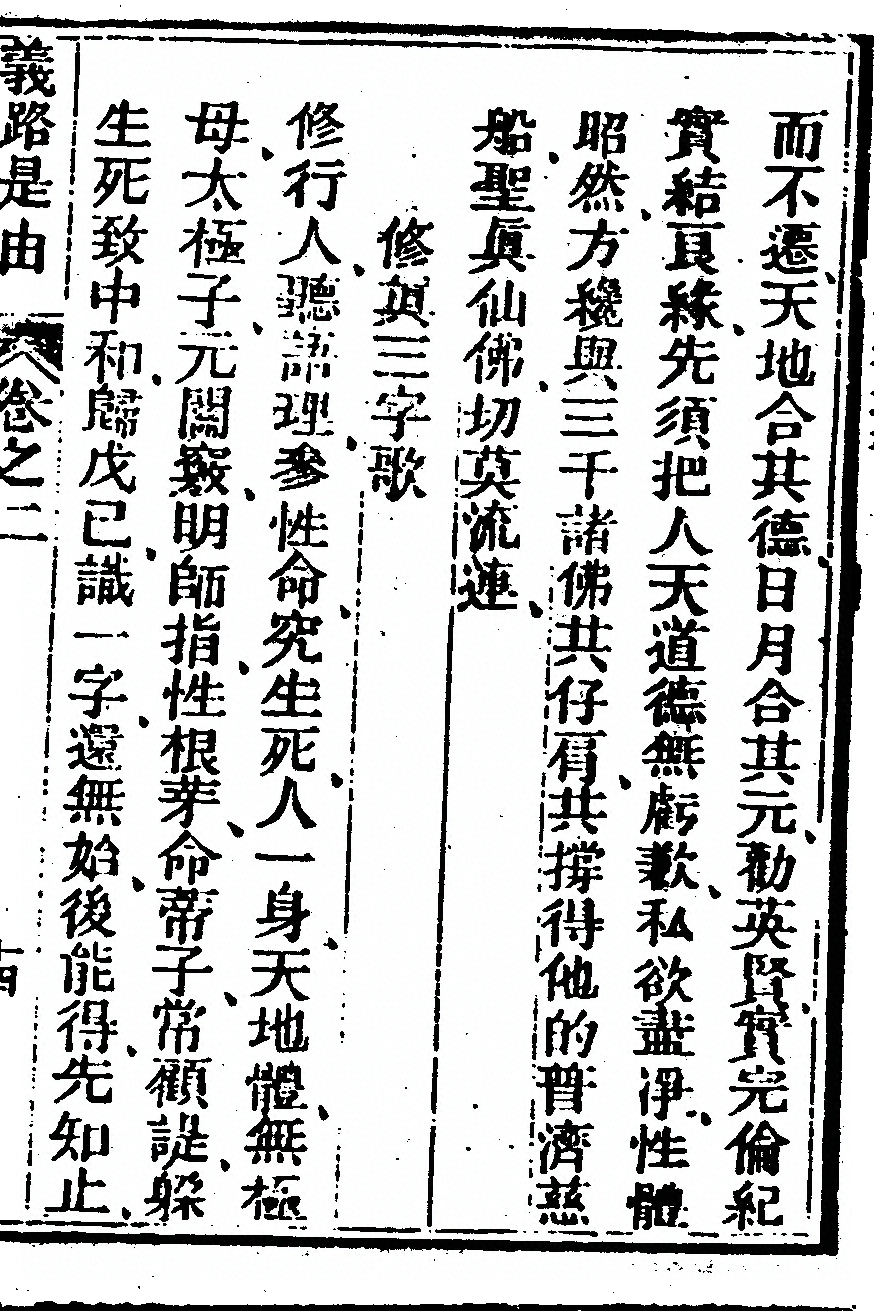 而不遷、天地合其德、日月合其元、勸英賢、實完倫紀
實結良緣、先須把人天道德無虧歉、私欲盡淨、性體
昭然、方纔與三千諸佛共仔肩、共撐得他的普濟慈
船、聖眞仙佛、切莫流連、
修眞三字歌
修行人、聽語理、參性命、究生死、人一身、天地體、無極
母、太極子、元關竅、明師指、性根芽、命蒂子、常顧諟、躲
生死、致中和、歸戊己、識一字、還無始、後能得、先知止、
義路是由 卷之二 十四